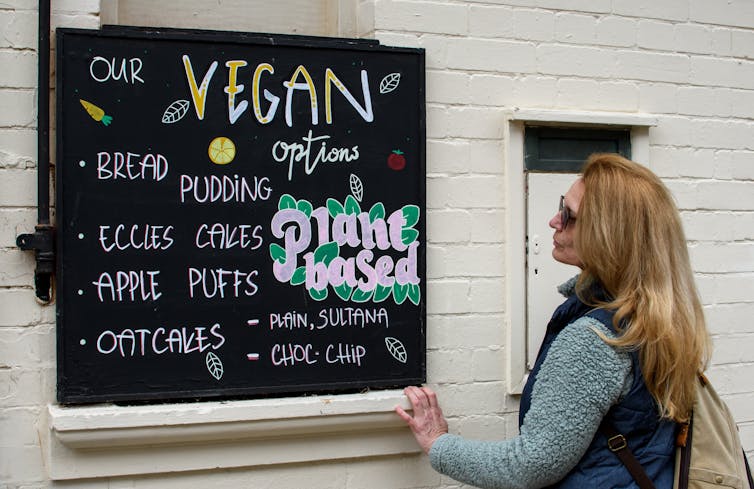 OUR VEGAN
options
• BREAD PUDDING
• ECCLES CAKES
• APPLE PUFFS
Plant based
• OATCAKES - PLAIN, SULTANA
- CHOC-CHIP